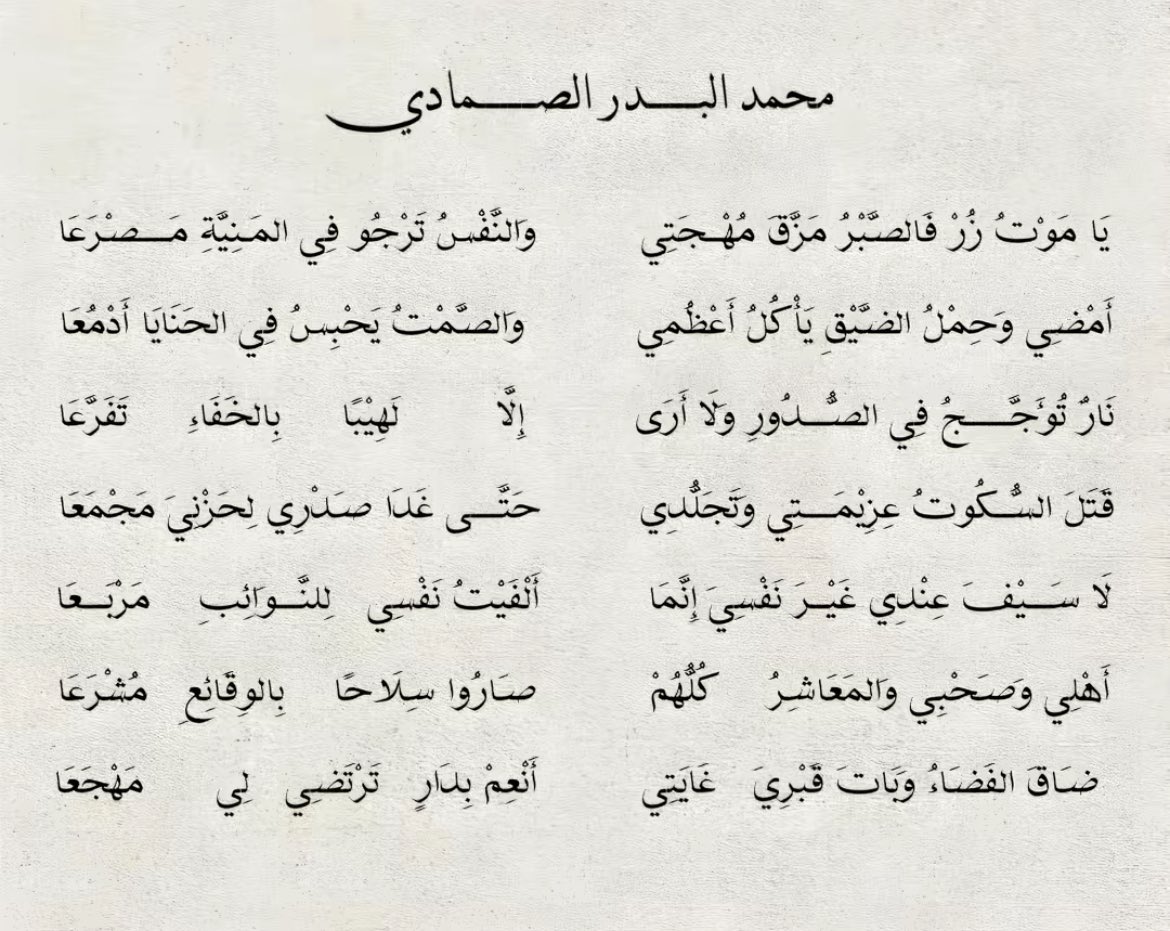 محمد البدر الصمادي
يَا مَوْتُ زُرْ فَالصَّبْرُ مَزَّقَ مُهْجَتِي وَالنَّفْسُ تَرْجُو فِي المَنِيَّةِ مَصْرَعَا
أَمْضِي وَحِمْلُ الضَّيْقِ يَأْكُلُ أَعْظُمِي وَالصَّمْتُ يَحْبِسُ فِي الحَنَايَا أَدْمُعَا
نَارٌ تُؤَجَّجُ فِي الصُّدُورِ وَلَا أَرَى إِلَّا لَهِيْبًا بِالخَفَاءِ تَفَرَّعَا
قَتَلَ السُّكُوتُ عِزِيْمَتِي وَتَجَلُّدِي حَتَّى غَدَا صَدْرِي لِحَزْنِيَ مَجْمَعَا
لَا سَيْفَ عِنْدِي غَيْرَ نَفْسِيَ إِنَّمَا أَلْفَيْتُ نَفْسِي لِلنَّوَائِبِ مَرْبَعَا
أَهْلِي وَصَحْبِي وَالمَعَاشِرُ كُلُّهُمْ صَارُوا سِلَاحًا بِالوِقَائِعِ مُشْرَعَا
ضَاقَ الفَضَاءُ وَبَاتَ قَبْرِيَ غَايَتِي أَنْعِمْ بِدَارٍ تَرْتَضِي لِي مَهْجَعَا